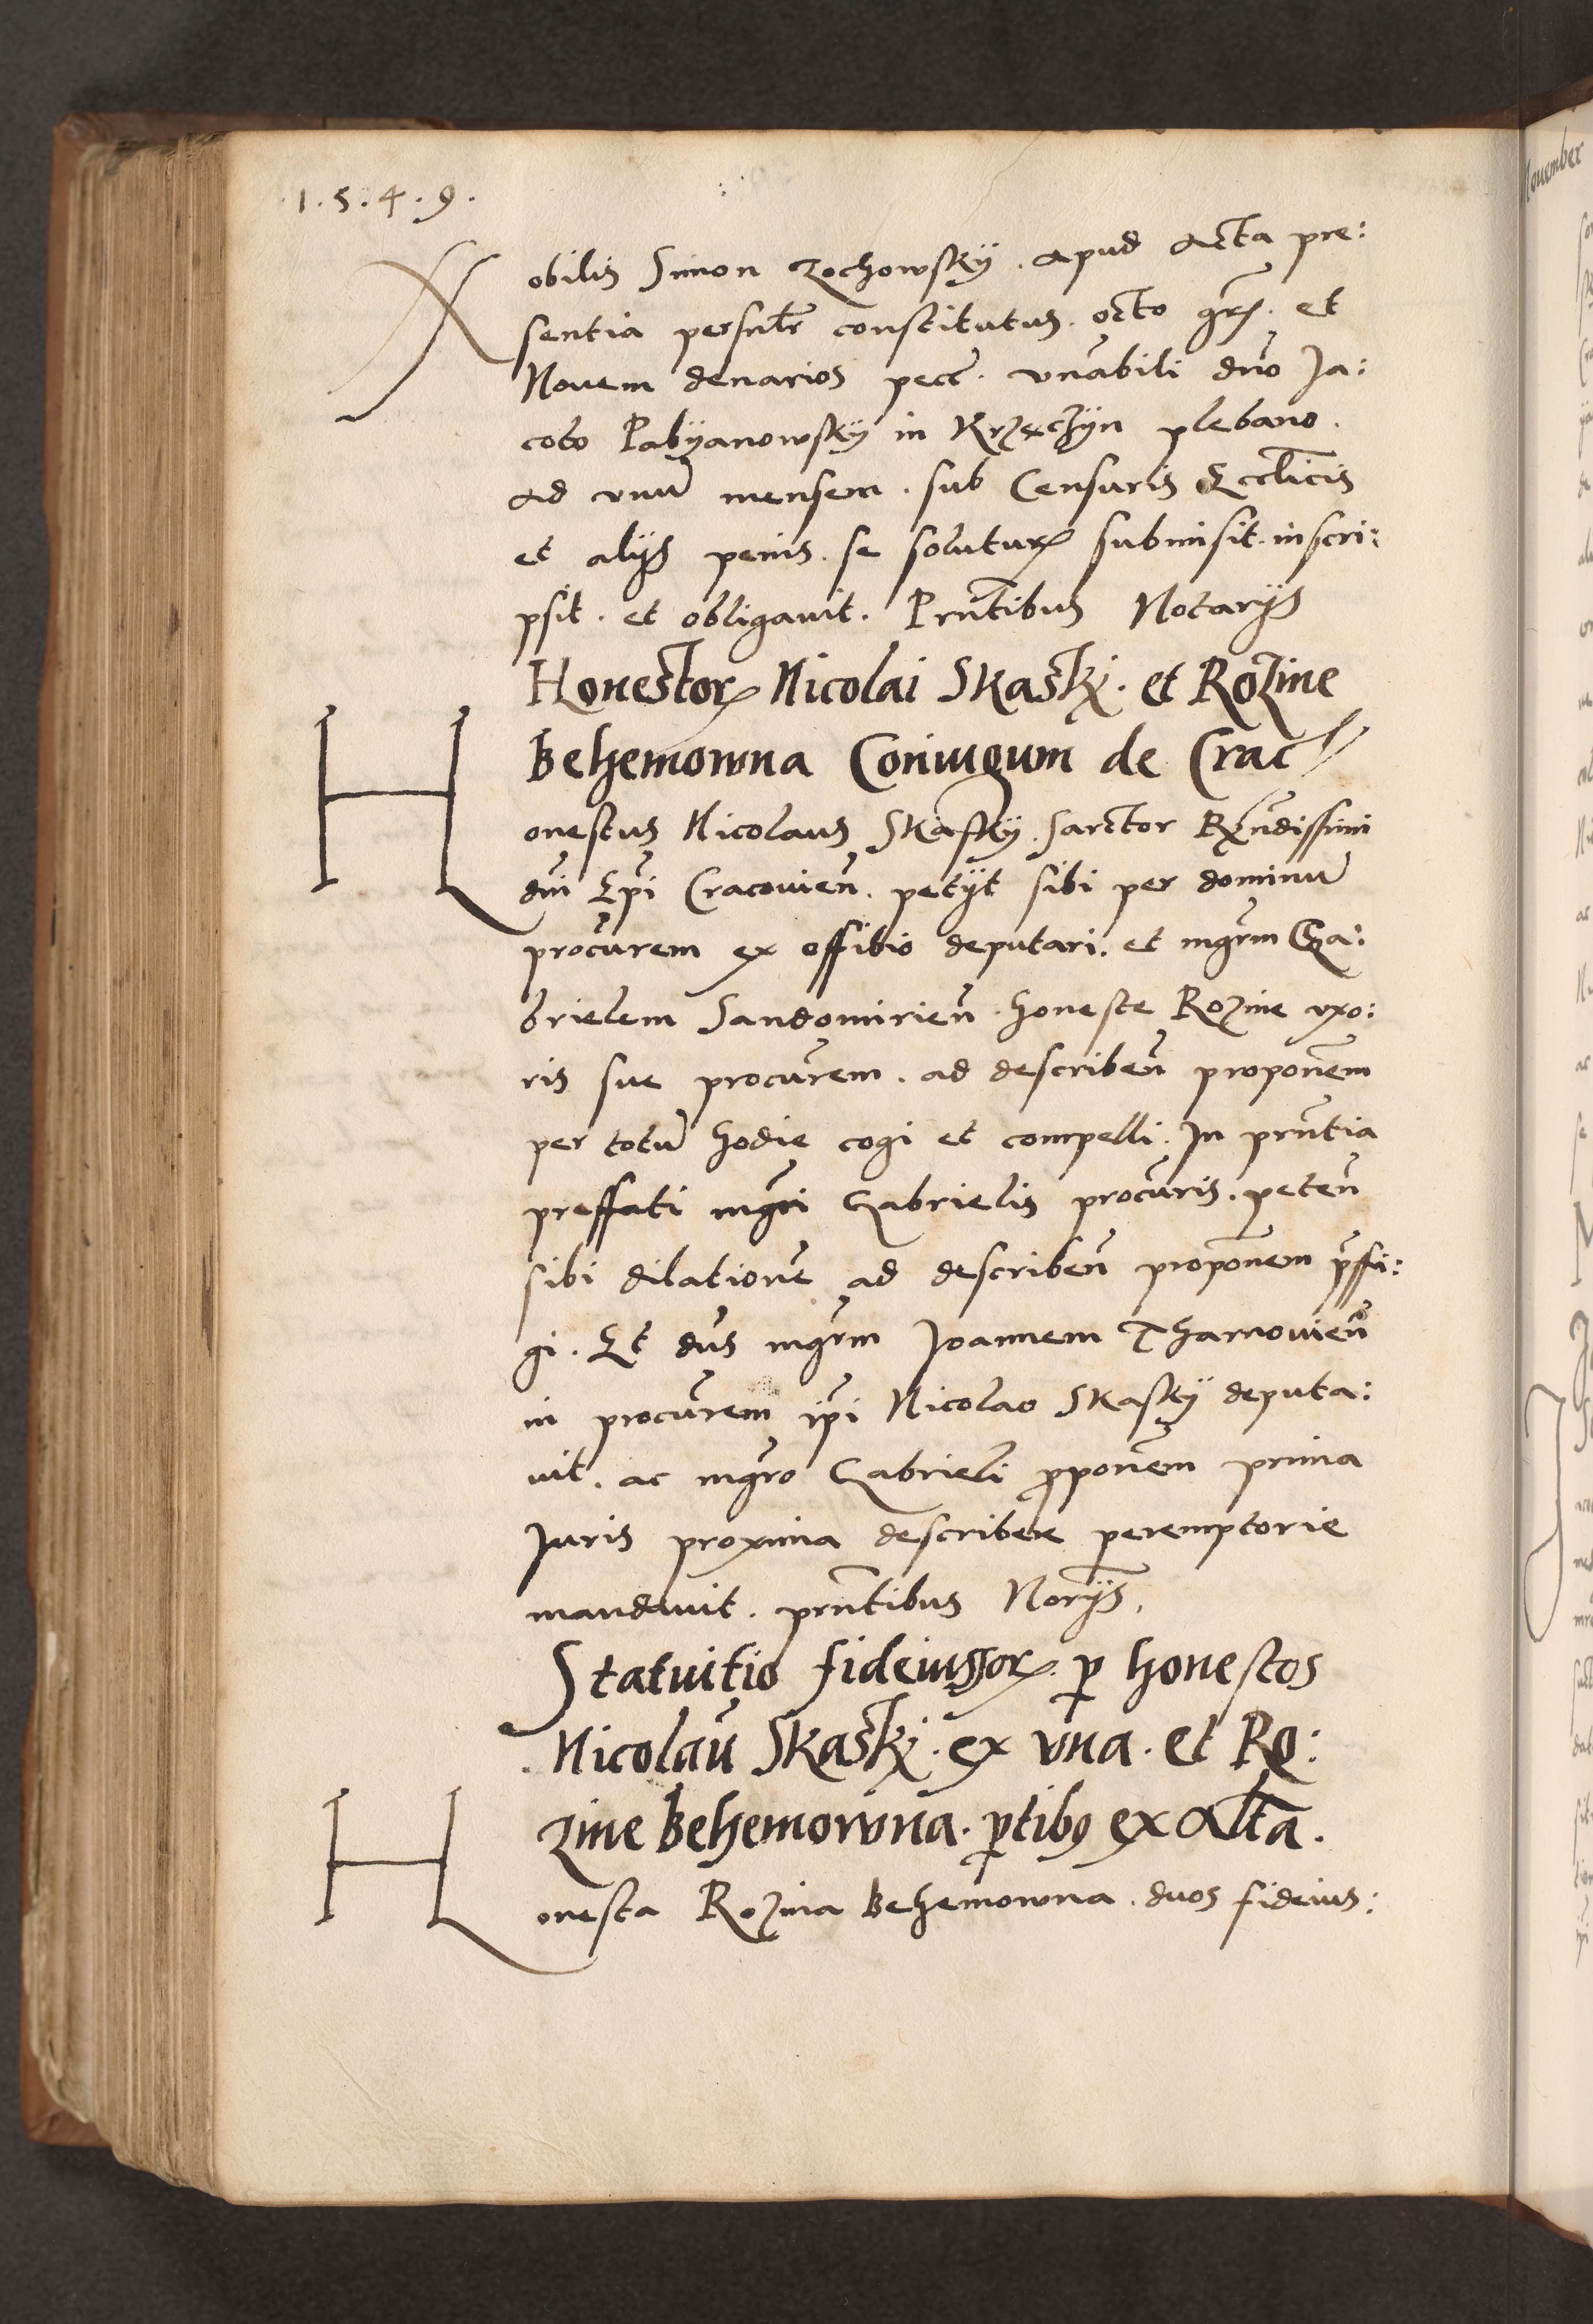 1.5.4.9.
Nobilis Simon Zochowsky. apud Acta pre:
sentia persnlr constitutus. octo grs. et
Novem denarios pecc. vnabili dno Ja:
cobo Pabyanowsky in Krzeczyn plebano.
ad vnu mensem. sub Censuris Ecclicis
et alijs penis. se soluturu submisit. inscri:
psit. et obligauit. Prntibus Notarijs
Honestor Nicolai Skasky. et Rozine
Behemowna Coniugum de Crac
Honestus Nicolaus Skasky. Sarctor Rndissimi
dni Epi Cracouien. petijt sibi per dominu
procurem ex offitio deputari. et mgrm Ga:
brielem Sandomirien. honeste Rozine vxo:
ris sue procurem. ad describen proponem
per totu hodie cogi et compelli. In prntia
preffati mgri Gabrielis procuris. peten
sibi dilatione ad describen proponem prffi:
gi. Et dns mgrm Joannem Tharnouien
in procurem ipi Nicolao Skasky deputa:
uit. ac mgro Gabrieli proponem prima
Juris proxima describere peremptorie
mandauit. prntibus Norijs.
Statuitio fideiussor. p honestos
Nicolau Skasky. ex vna. et Ro:
zine Behemowna. ptibus ex Alta.
Honesta Rozina Behemowna. duos fideius:
Nouember